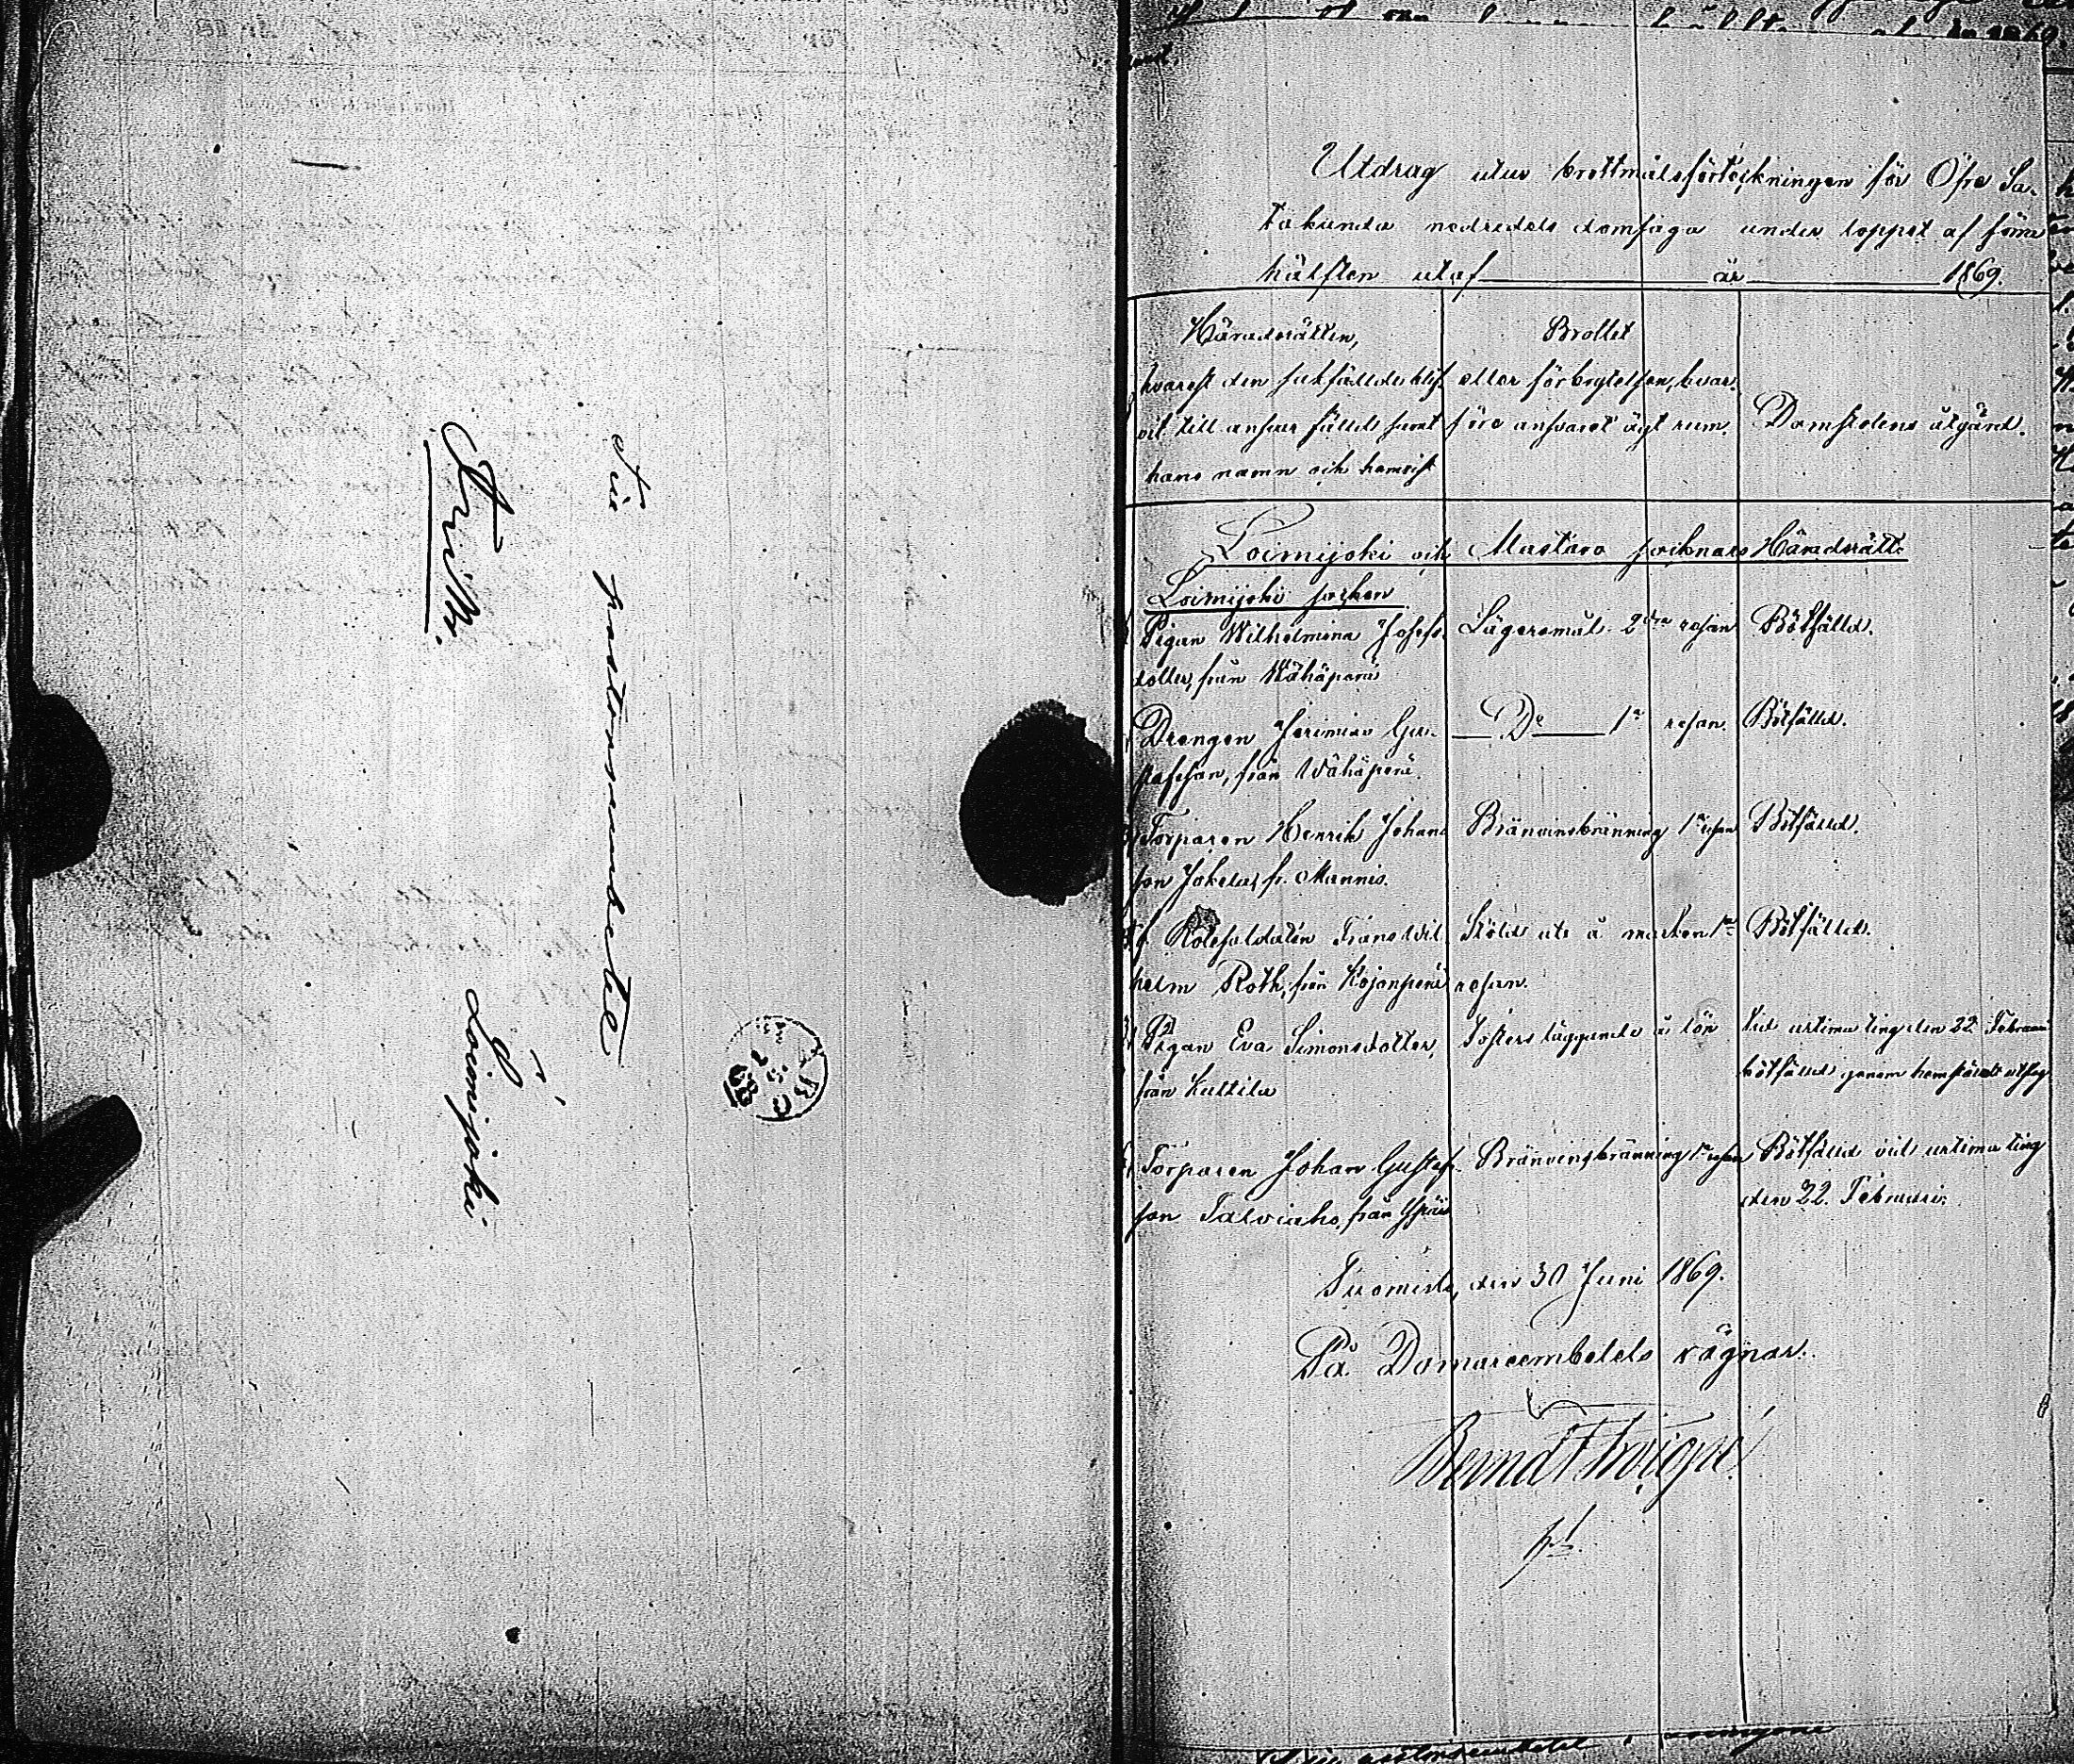 Till pastorsembetet
i
Loimijoki
Fribr.
ÅBO
1869.
Utdrag utur brottmålsförteckningen för Öfre Sa-
takunda nedredels domsaga under loppet af förra
hälften utaf år 1869.
Häradsrätten,
hvarest den sakfällde blif-
vit till ansvar fälld samt
hans namn och hemvist
Brottet
eller förbrytelsen, hvar-
före ansvaret ägt rum.
Domstolens åtgärd.
Loimijoki och Mastava socknars Häradsrätt.
Loimijoki socken
Pigan Wilhelmina Josefs-
dotter, från Wähäperä
Lägersmål 2dra resan
Bötfälld.
Drengen Jeremias Gu-
stafsson, från Wähäperä.
D:o 1a resan.
Bötfälld.
Torparen Henrik Johans-
son Jokela, fr. Mannis.
Bränvinsbränning 1a resan
Bötfälld.
f. Rotesoldaten Frans Wil-
helm Roth, från Kojonperä
Stöld ute å marken 1a
resan.
Bötfälld.
Pigan Eva Simonsdotter,
från Kuttila
Fosters läggande å lön
Vid urtima ting den 22 Februari
bötfälld genom hemställdt utslag
Torparen Johan Gustafs-
son Talviaho, från Ypäjä
Bränvinsbränning 1a resan
Bötfälld vid urtima ting
den 22. Februari.
Tuomisto, den 30 Juni 1869.
På Domareembetets vägnar: